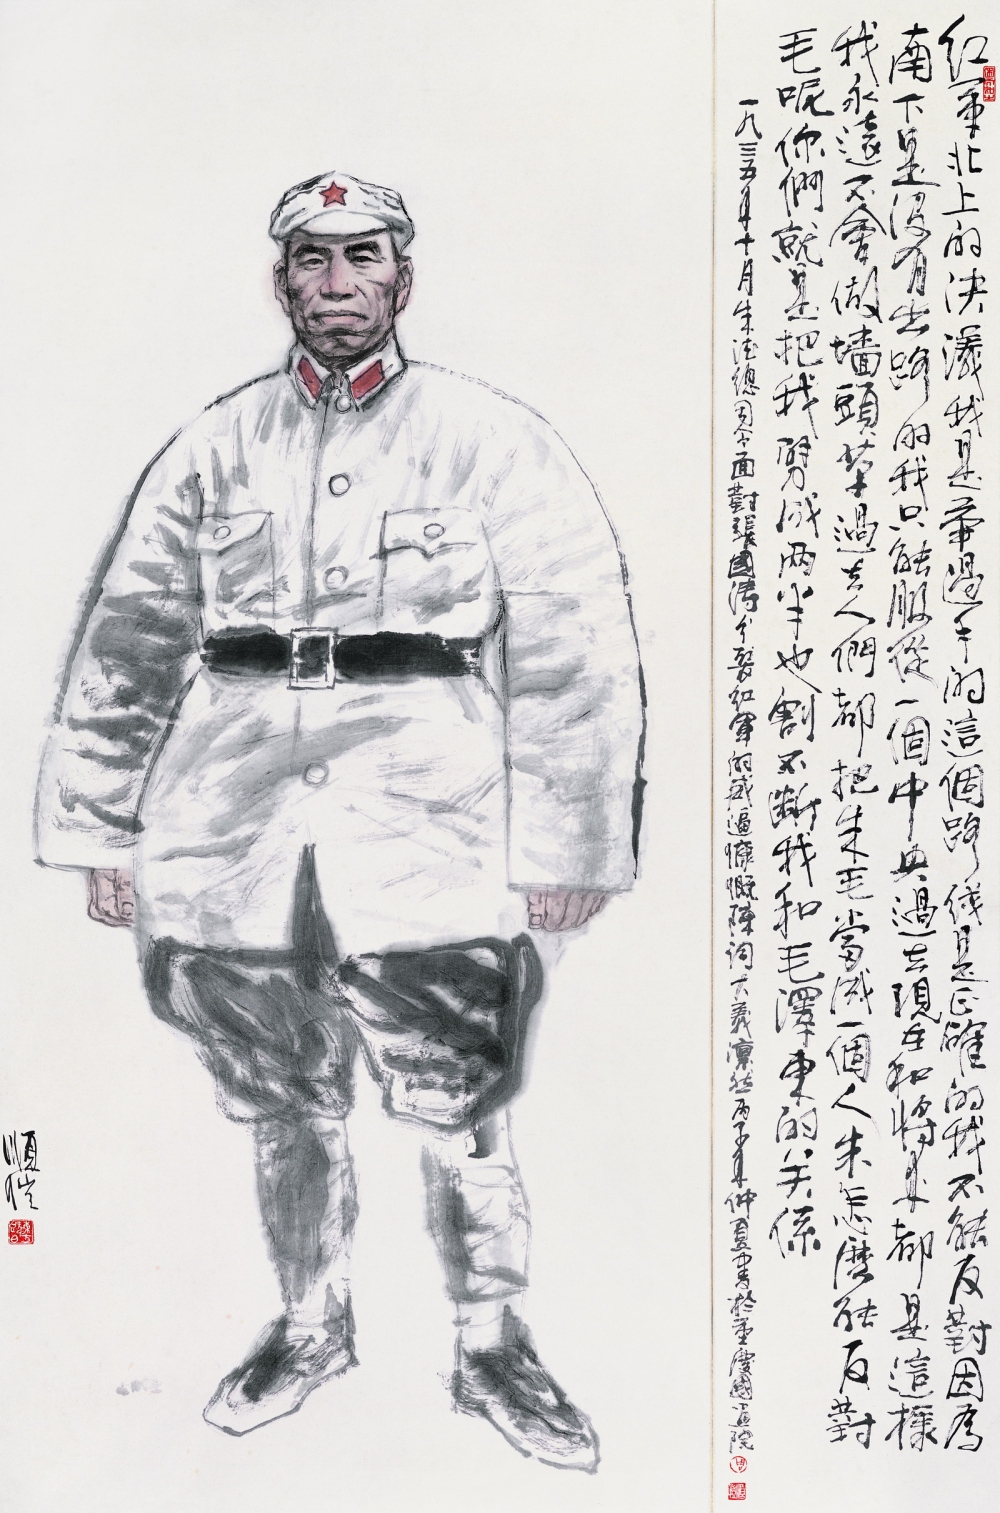 红军北上的决议我是举过手的這個路线是正確的我不能反對因為
南下是沒有出路的我只能服從一個中央過去現在和將来都是這樣
我永遠不會做墻頭草過去人們都把朱毛當成一個人朱怎麽能反對
毛呢你們就是把我劈成两半也割不斷我和毛澤東的关係
一九三五年十月朱德總司令面對張國濤分裂红軍的威逼慷慨陳詞大義凛然丙子年仲夏書於重慶國画院
順愷